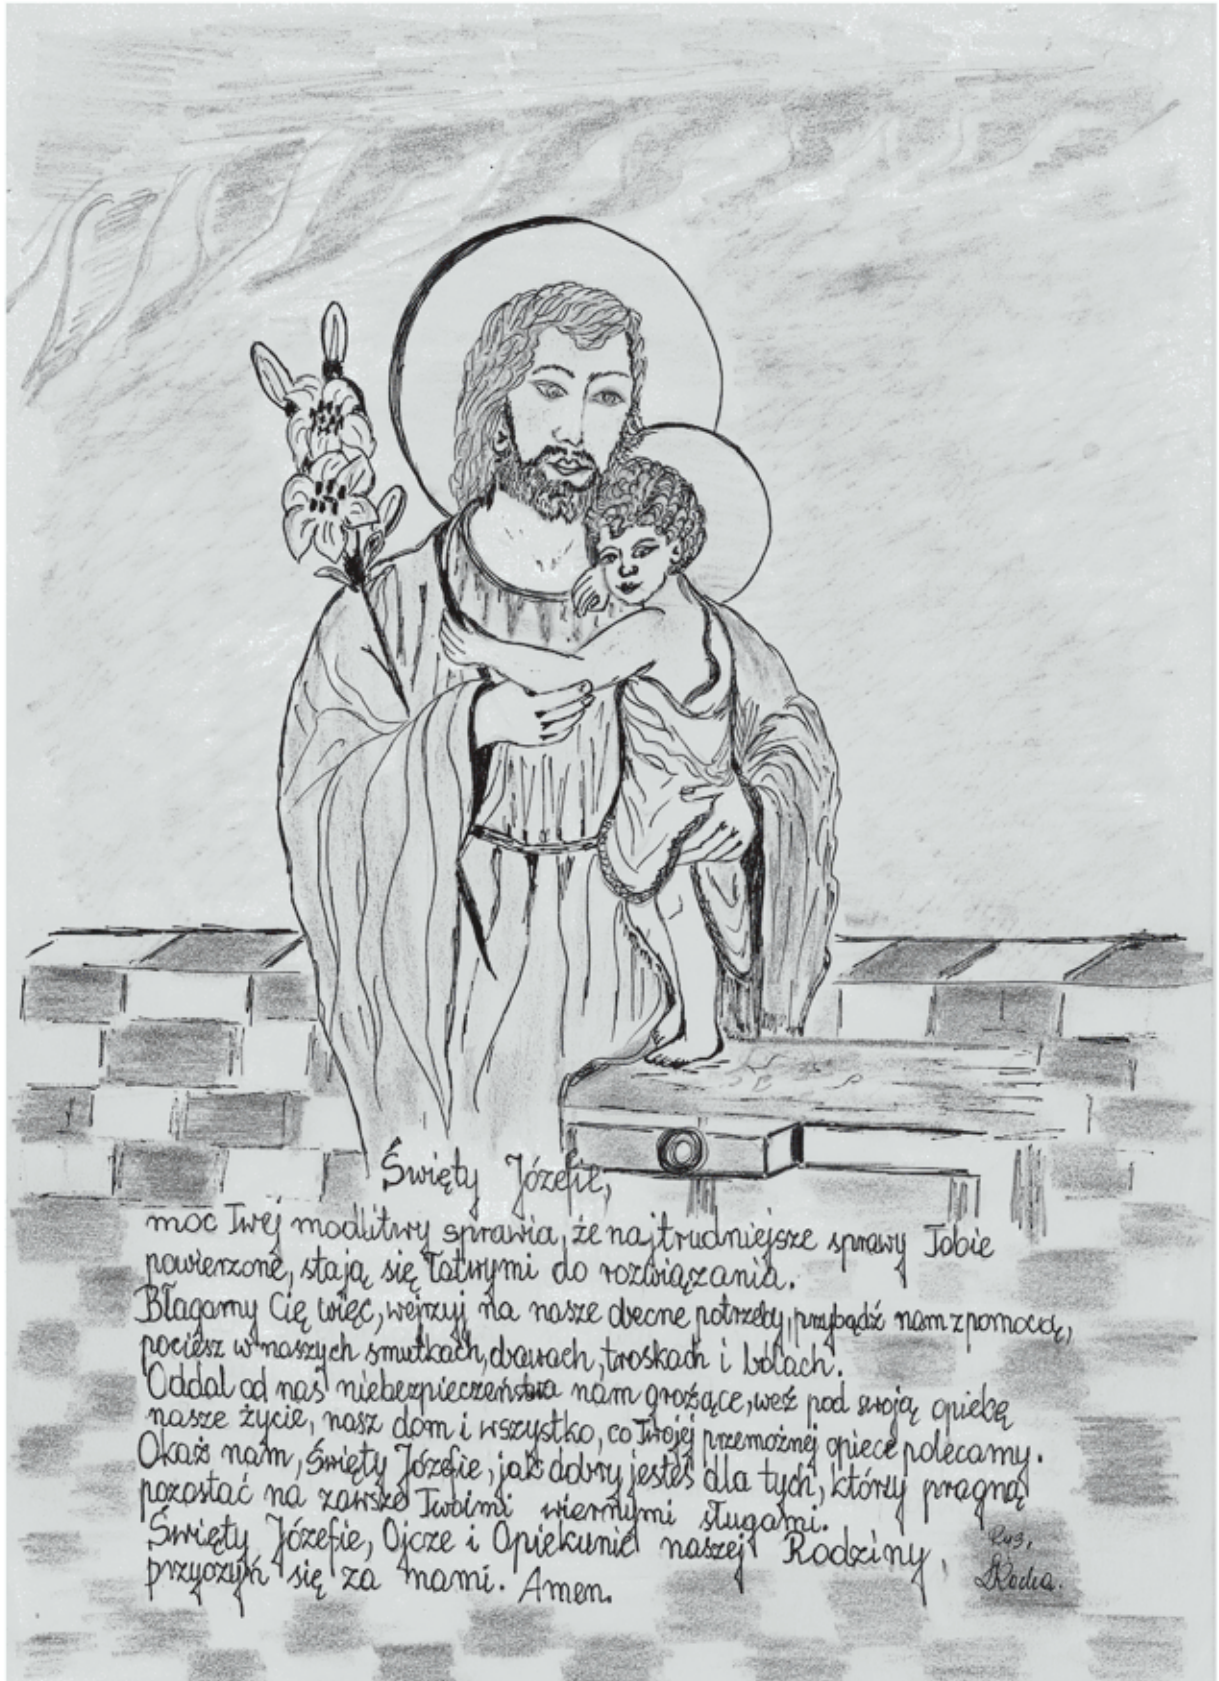 Święty Józefie,
moc Twej modlitwy sprawia, że najtrudniejsze sprawy Tobie
powierzone, stają się łatwymi do rozwiązania.
Błagamy Cię więc, wejrzyj na nasze obecne potrzeby, przybądź nam z pomocą,
pociesz w naszych smutkach, obawach, troskach i bólach.
Oddal od nas niebezpieczeństwa nam grożące, weź pod swoją opiekę
nasze życie, nasz dom i wszystko, co Twojej przemożnej opiece polecamy.
Okaż nam, Święty Józefie, jak dobry jesteś dla tych, którzy pragną
pozostać na zawsze Twoimi wiernymi sługami.
Święty Józefie, Ojcze i Opiekunie naszej Rodziny,
przyczyń się za nami. Amen.
Rys,